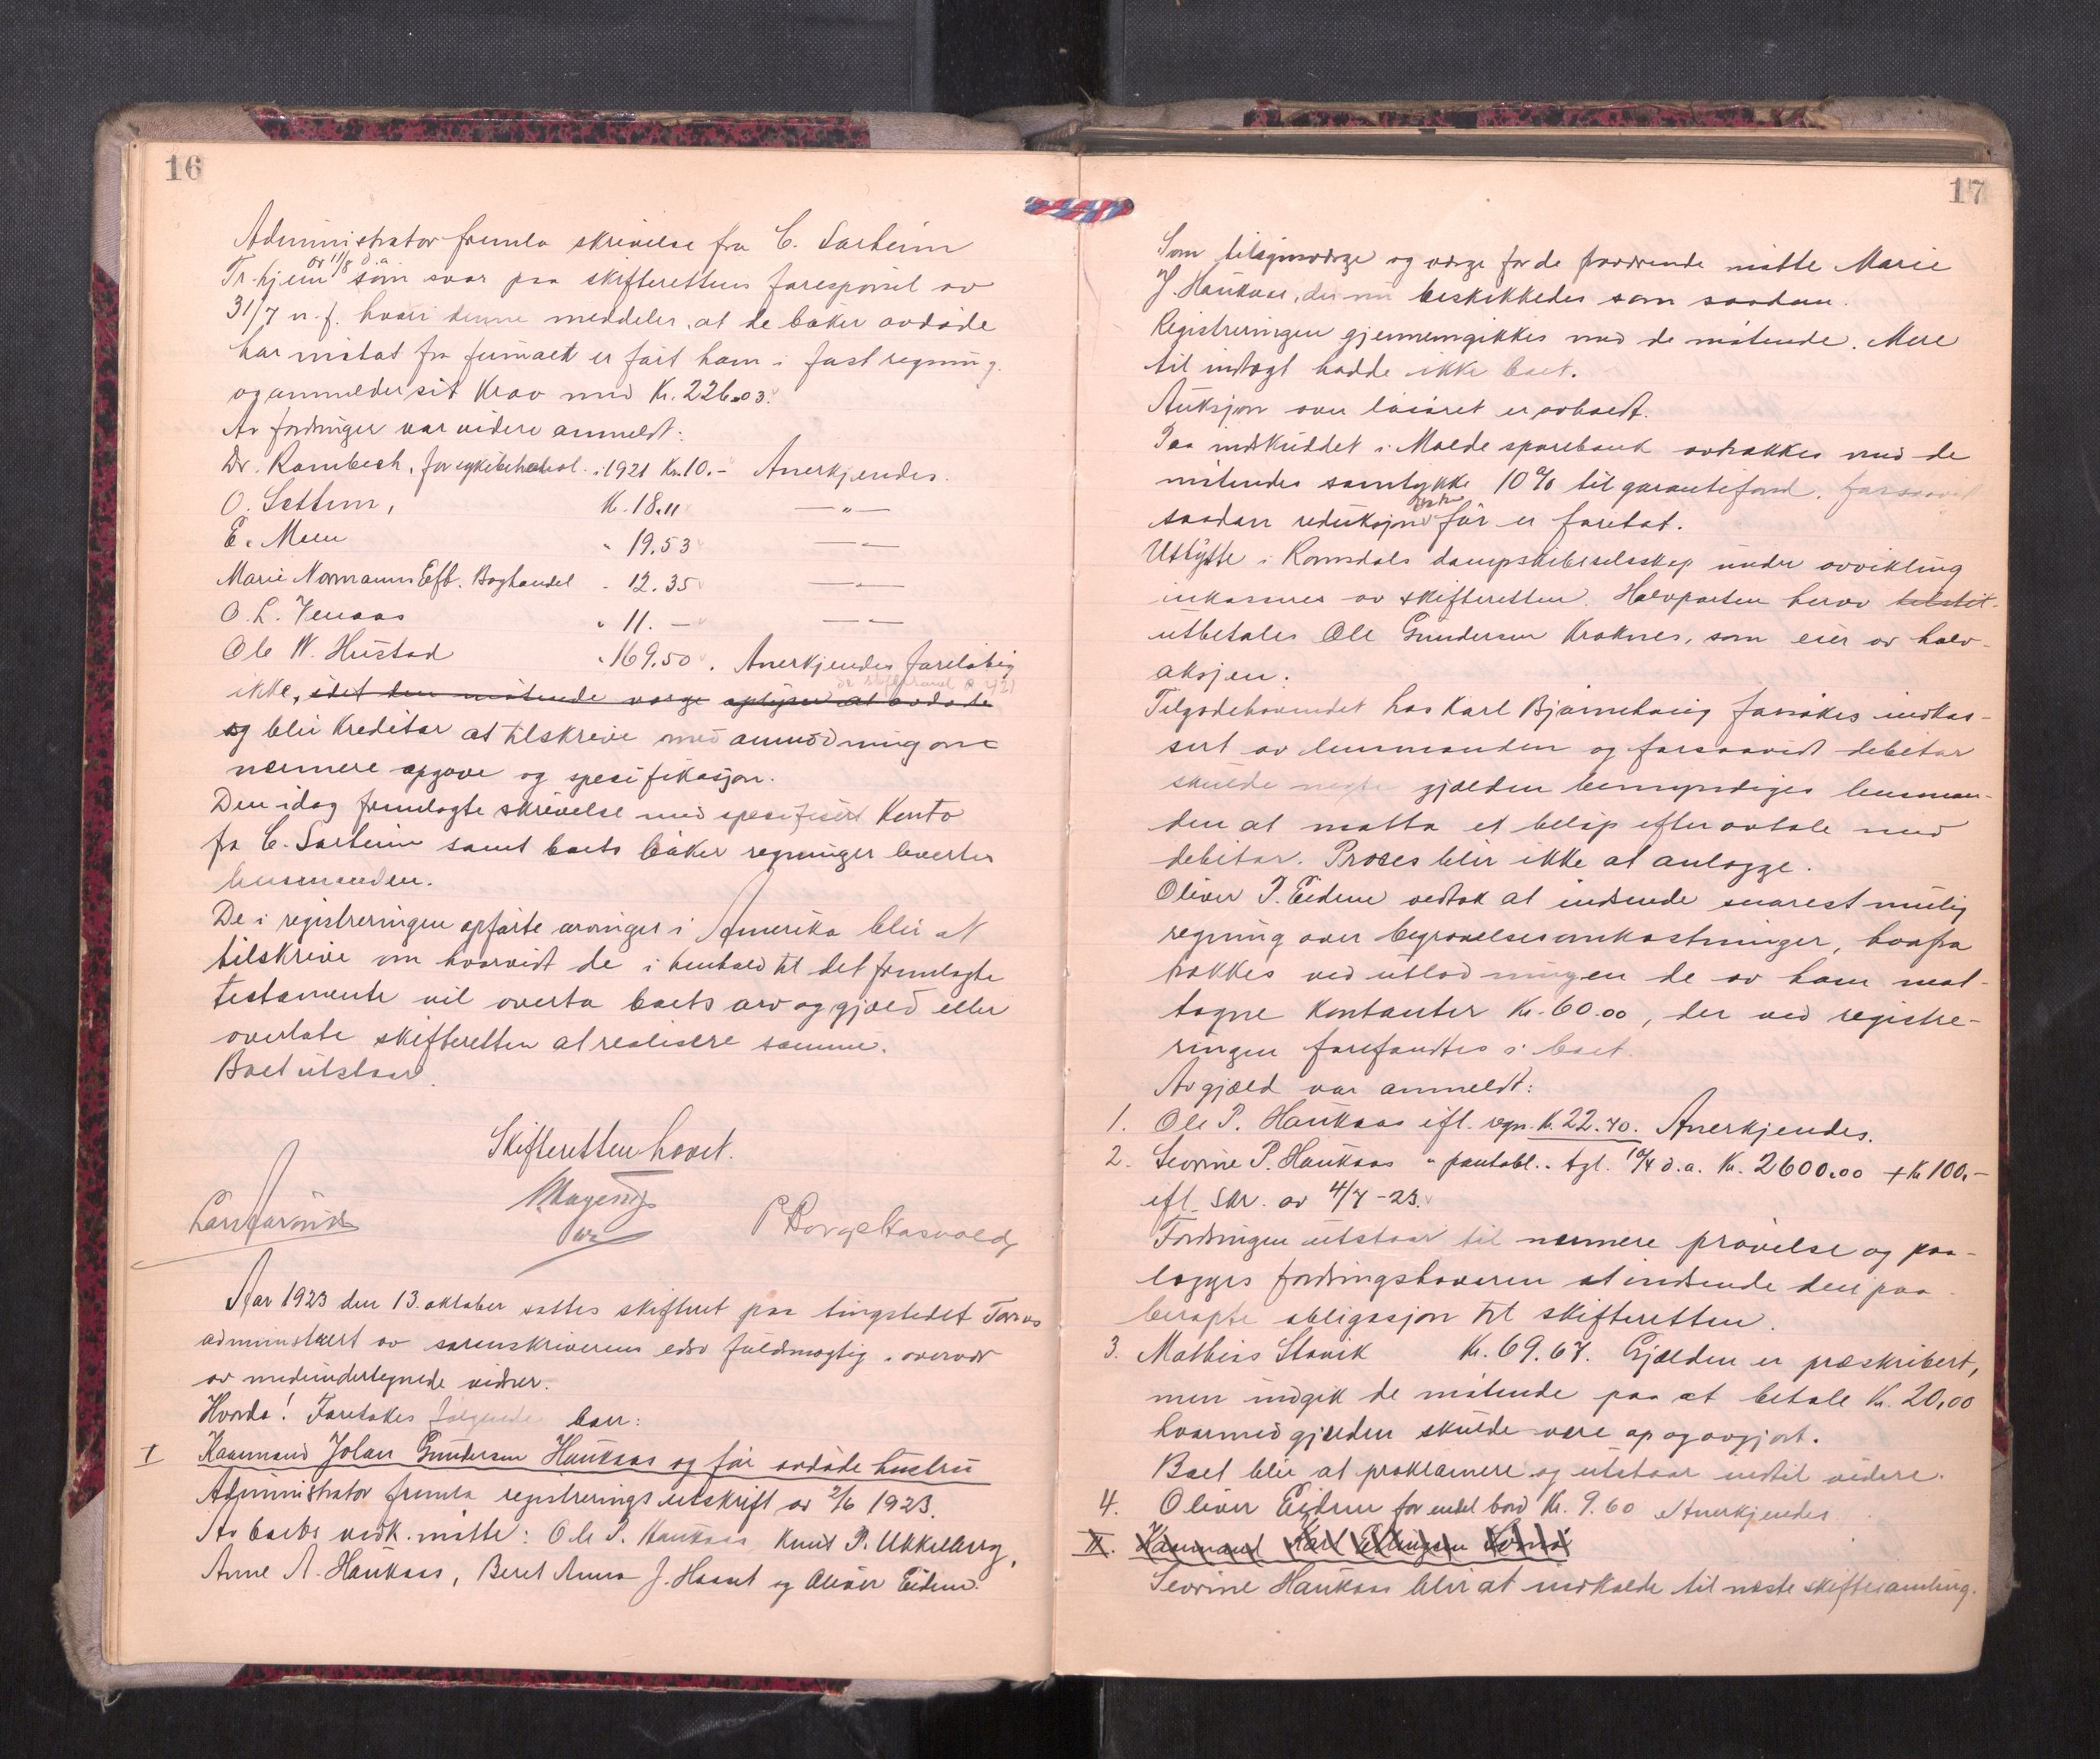 16
Administrator fremla skrivelse fra C. Sarheim
Tr.hjem av 11/8 d.a. som svar paa skifterettens forespörsel av
31/7 n.f. hvori denne meddeler, at de böker avdöde
har mötat fra firmaet er fört ham i fast regning.
og anmelder sit krav med Kr. 226.03.
Av fordringer var videre anmeldt:
Dr. Rambech, for sykebehandl. i 1921 Kr. 10.- Anerkjendes.
O. Settem, K. 18.11 —„—
E. Meen „ 19.53 —„—
Marie Normanns Eft. Boghandel „ 12.35 —„—
O. L. Venaas „ 11.— —„—
Ole W. Hustad „ 169.50. Anerkjendes forelöbig
ikke, idet den mötende verge oplyser at avdöde
og blir kreditor at tilskrive med anmodning om
nærmere opgave og spesifikasjon.
Den idag fremlagte skrivelse med spesifisert Konto
fra C. Sarheim samt boets böker regninger levertes
lensmanden.
De i registreringen opförte arvinger i Amerika blir at
tilskrive om hvorvidt de i henhold til det fremlagte
testamente vil overta boets arv og gjæld eller
overlate skifteretten at realisere samme.
Boet utstaar.
Skifteretten hævet.
Aar 1923 den 13. oktober sattes skifteret paa tingstedet Tornes
administrert av sorenskriverens edsv fuldmægtig i overvær
av medundertegnede vidner.
Hvorda! Foretokes følgende boer:
I Kaarmand Johan Gundersen Haukaas og för avdöde hustru
Administrator fremla registreringsutskrift av 2/6 1923.
Av boets vedk. mötte: Ole P. Haukaas, Knut P. Ukkelberg,
Anne A. Haukaas, Beret Anna J. Haaset og Oliver Eidem.
17
Som tilsynsverge og verge for de fraværende mötte Marie
J. Haukaas, der nu beskikkedes som saadan.
Registreringen gjennemgikkes med de mötende. Mere
til indtægt hadde ikke boet.
Auksjon over lösöret er avholdt.
Paa indskuddet i Molde sparebank avtrækkes med de
mötendes samtykke 10% til garantifond, forsaavidt
saadan reduksjon för er foretat.
Utbytte i Romsdals dampskibsselskap under avvikling
inkasseres av skifteretten. Halvparten herav
utbetales Ole Gundersen Kroknes, som eier av halv-
aksjen.
Tilgodehavendet hos Karl Bjørnehaug forsökes indkas-
sert av lensmanden og forsaavidt debitor
skulde negte gjælden bemyndiges lensman-
den at motta et belöp efter avtale med
debitor. Proces blir ikke at anlægge.
Oliver P. Eidem vedtok at indsende snarest mulig
regning over begravelsesomkostninger, hvorfra
trækkes ved utlodningen de av ham mot-
tagne kontanter Kr. 60.00, der ved registre-
ringen forefandtes i boet.
Av gjæld var anmeldt:
1. Ole P. Haukaas ifl. regn. Kr. 22.40. Anerkjendes.
2. Severine P. Haukaas „ pantobl. tgl. 10/4 d.a. Kr. 2600.00 + Kr 100.-
ifl. skr. av 4/7-23.
Fordringen utstaar til nærmere prövelse og paa-
lægges fordringshaveren at indsende den paa-
beropte obligasjon til skifteretten.
3. Mathias Stavik Kr. 69.67. Gjælden er præskribert,
men indgik de mötende paa at betale Kr. 20.00
hvormed gjælden skulde være op og avgjort.
Boet blir at proklamere og utstaar indtil videre.
4. Oliver Eidem for endel bord Kr. 9.60 Anerkjendes.
II. Kaarmand Karl Ellingsen
Severine Haukaas blir at indkalde til næste skiftesamling.